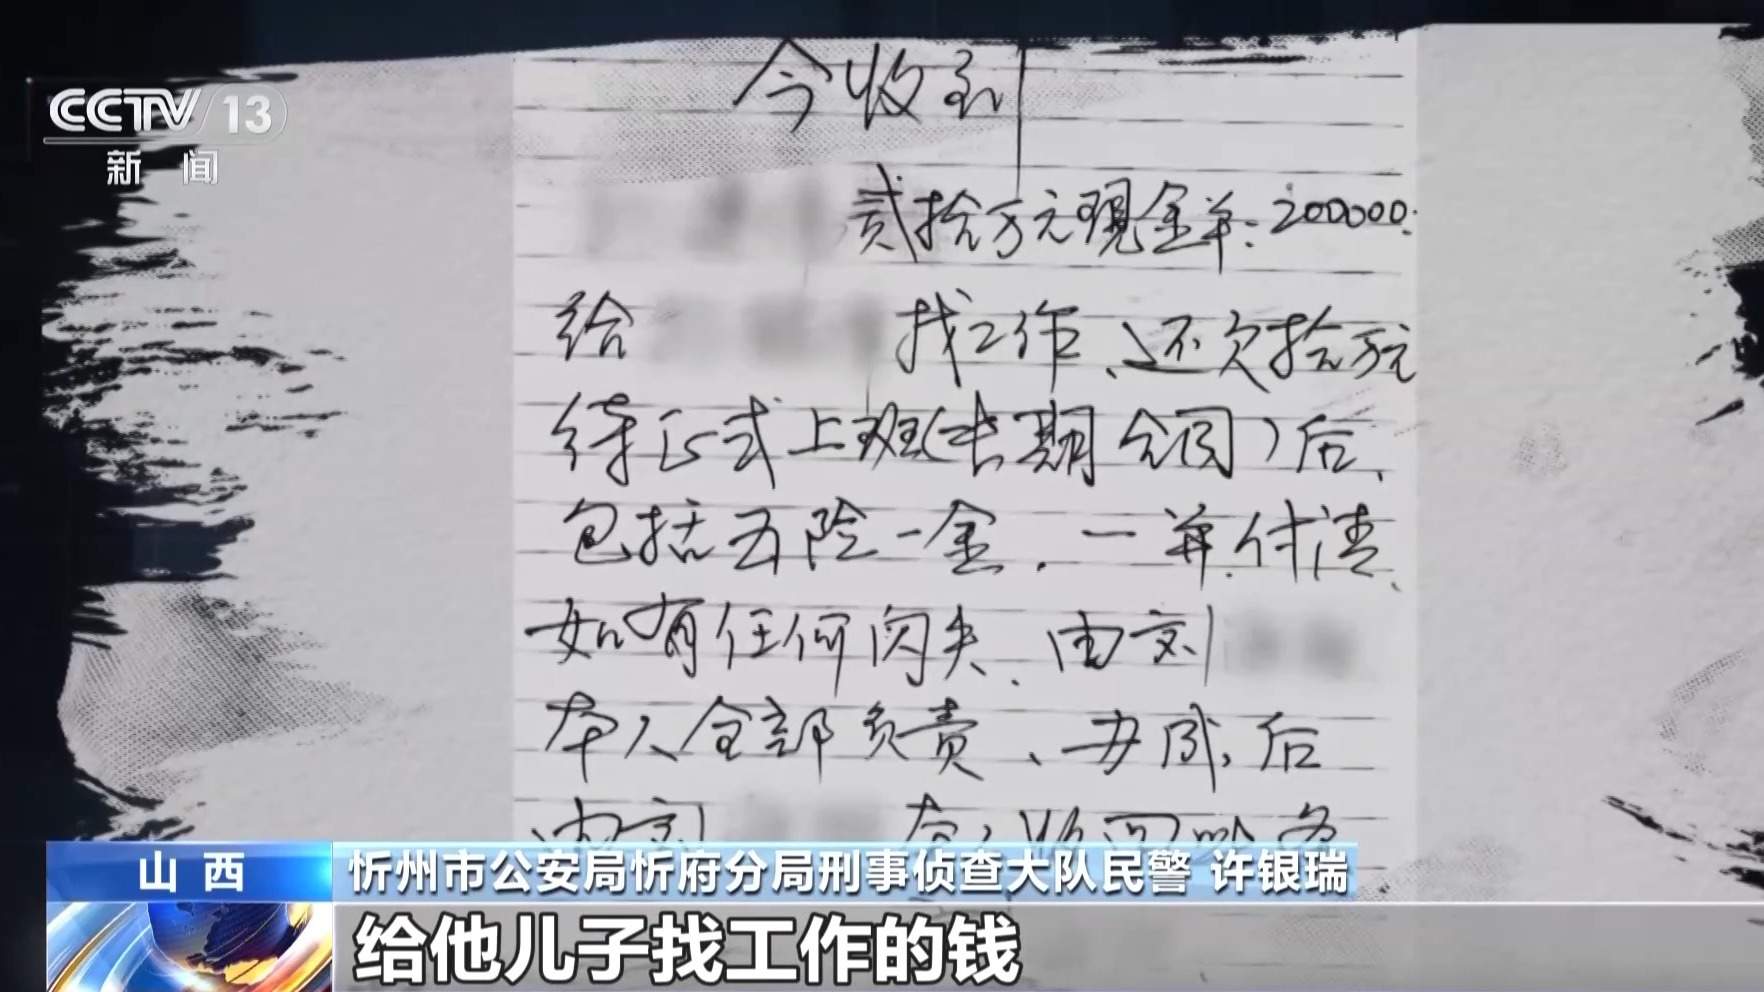 CCTV 13
新闻
今收到
贰拾万元现金¥:200000.
给 找工作、还欠拾万元
待正式上班(长期合同)后、
包括五险一金.一并付清、
如有任何闪失、由刘
本人全部负责、办成后
由刘
山西
忻州市公安局忻府分局刑事侦查大队民警 许银瑞
给他儿子找工作的钱